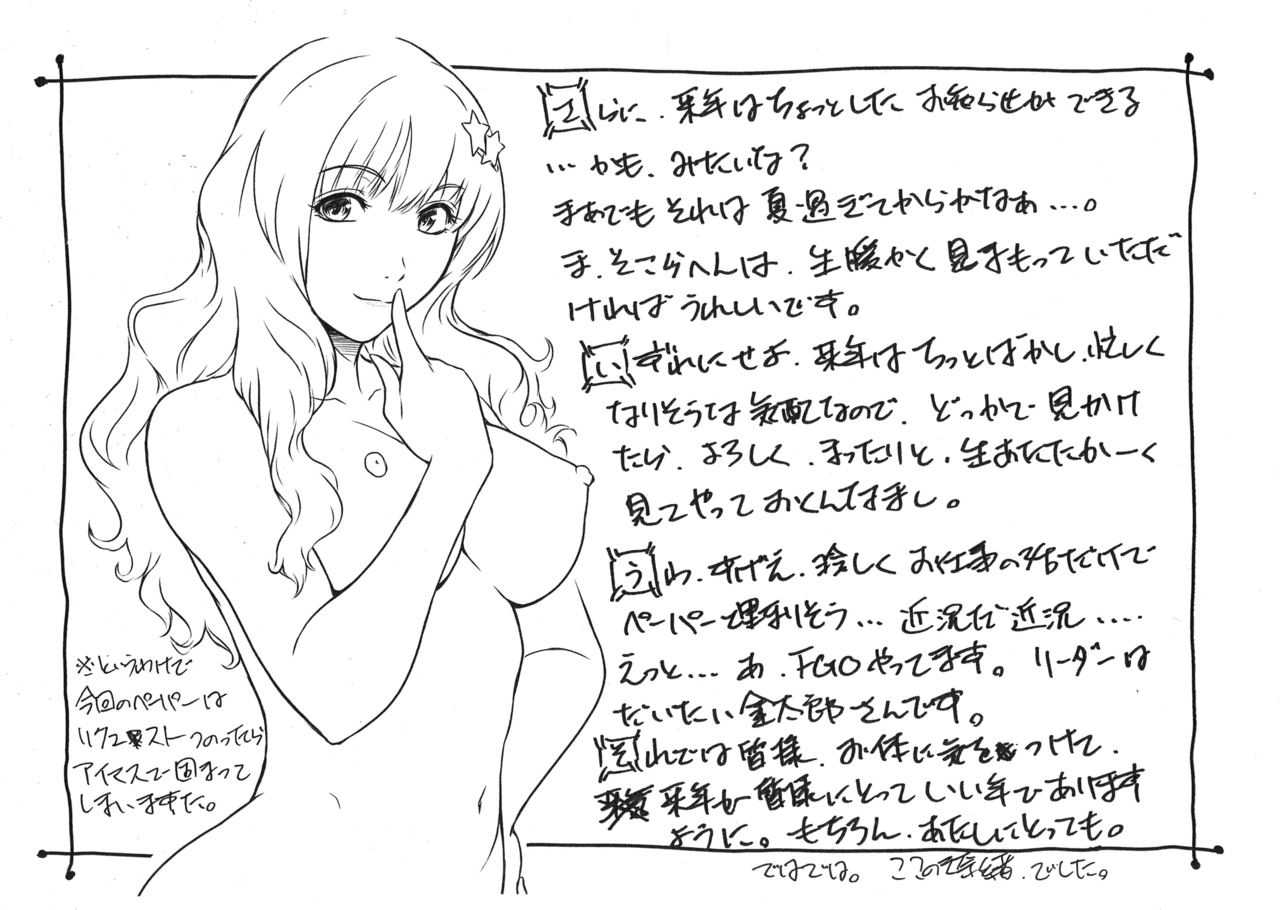 さらに、来年はちょっとしたお知らせができる
…かも、みたいな？
まぁでもそれは夏過ぎてからかなぁ…。
ま、そこらへんは、生暖かく見まもっていただだ
ければうれしいです。
いずれにせよ、来年はちっとばかし、忙しく
なりそうな気配なので、どっかで見かけ
たら、よろしく、まったりと、生あたたかーく
見てやっておくんなまし。
うわ、すげえ、珍しくお仕事の話だけで
ペーパー埋まりそう…近況だ近況….
えっと…あ、FGOやってます。リーダーは
だいたい金太郎さんです。
それでは皆様、お体に気をつけて、
来年が皆様にとっていい年であります
ように。もちろん、あたしにとっても。
ではでは。ここのき奈緒、でした。
※というわけで
今回のペーパーは
リクエストつのったら
アイマスで固まって
しまいますた。